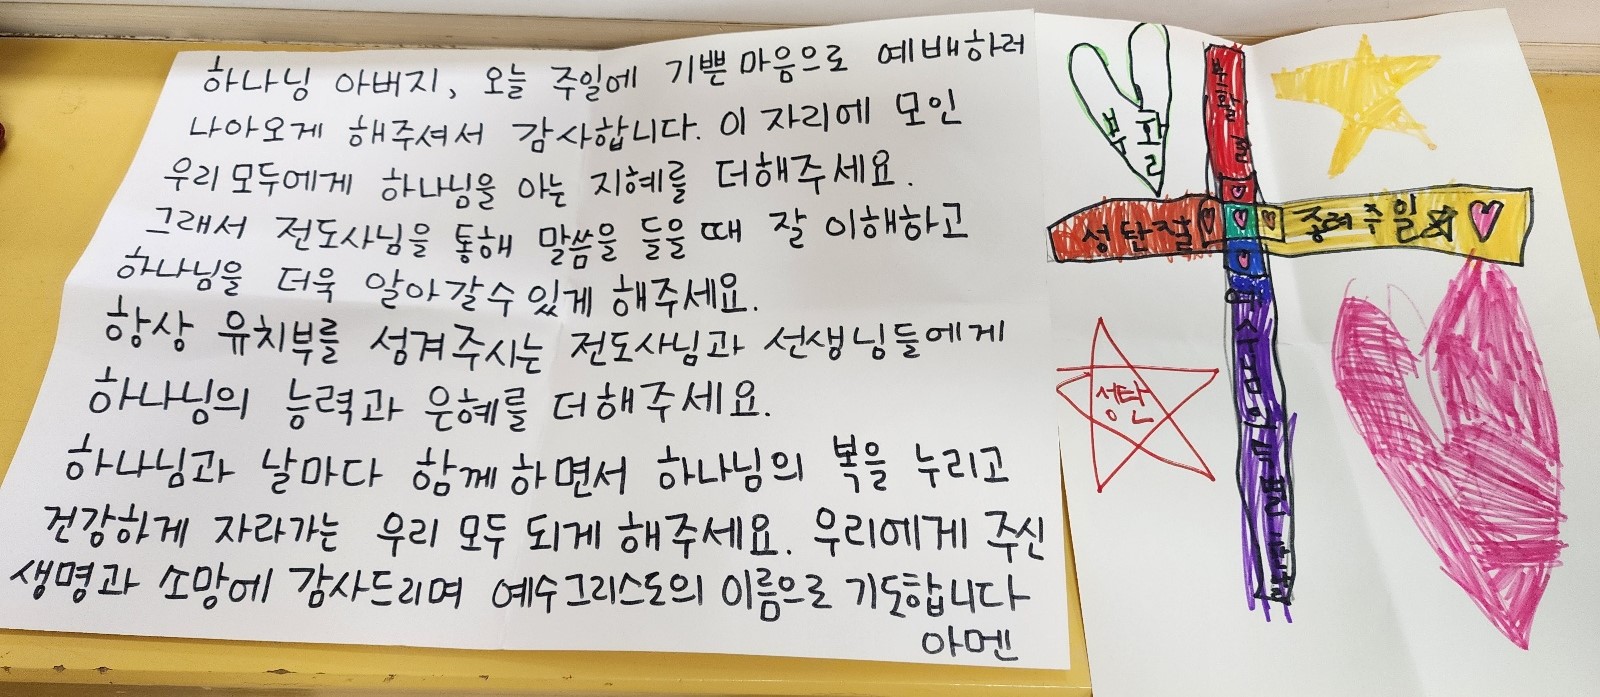 하나님 아버지, 오늘 주일에 기쁜 마음으로 예배하러
나아오게 해주셔서 감사합니다. 이 자리에 모인
우리 모두에게 하나님을 아는 지혜를 더해주세요.
그래서 전도사님을 통해 말씀을 들을 때 잘 이해하고
하나님을 더욱 알아갈수있게 해주세요.
항상 유치부를 섬겨주시는 전도사님과 선생님들에게
하나님의 능력과 은혜를 더해주세요.
하나님과 날마다 함께하면서 하나님의 복을 누리고
건강하게 자라가는 우리 모두 되게 해주세요. 우리에게 주신
생명과 소망에 감사드리며 예수그리스도의 이름으로 기도합니다
아멘
부활
성탄절
종려주일
성탄